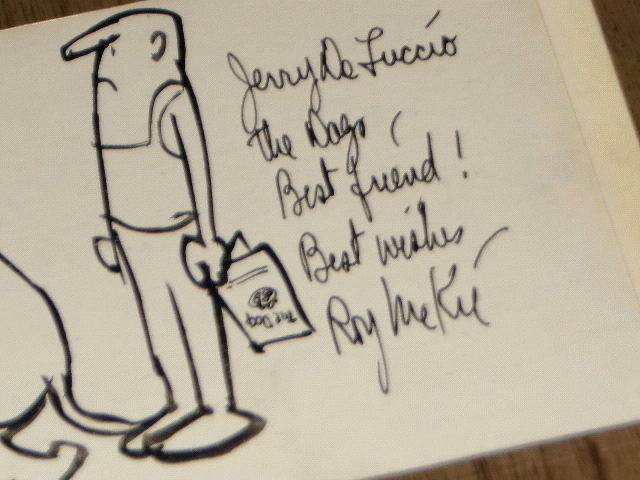 Jerry De Fuccio
the Dogs
Best friend!
Best wishes
Roy McKie
The Dog